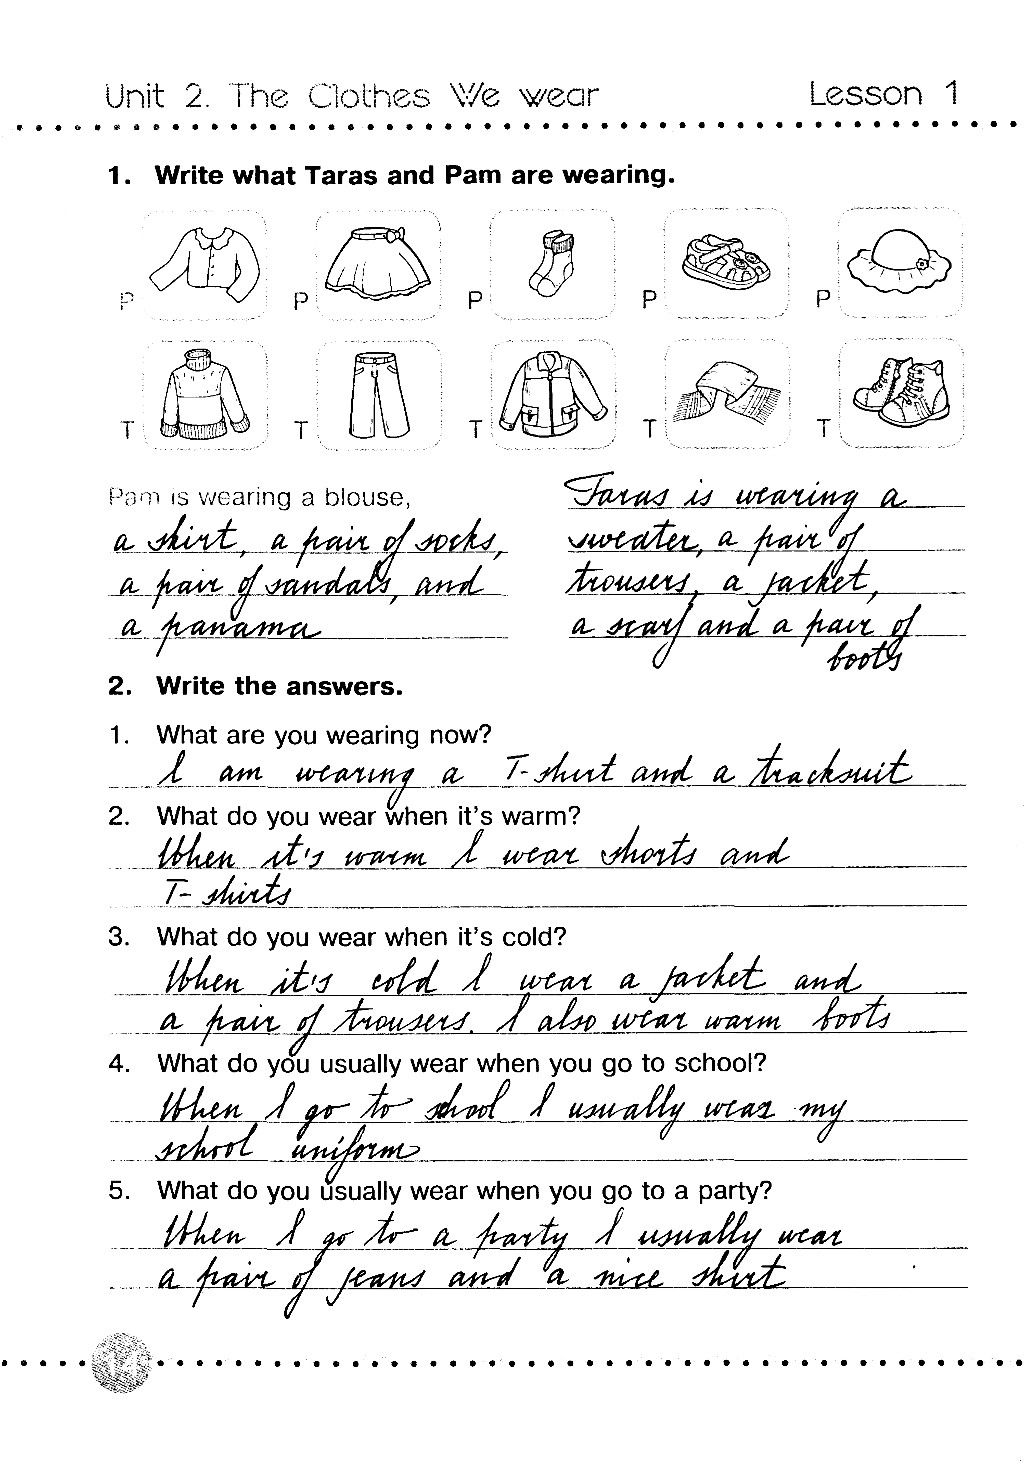 Unit 2. The Clothes We wear
Lesson 1
1. Write what Taras and Pam are wearing.
P P P P P
T T T T T
Pam is wearing a blouse,
a skirt, a pair of socks,
a pair of sandals, and
a panama
Taras is wearing a
sweater, a pair of
trousers, a jacket,
a scarf and a pair of
boots
2. Write the answers.
1. What are you wearing now?
I am wearing a T-shirt and a tracksuit
2. What do you wear when it's warm?
When it's warm I wear shorts and
T-shirts
3. What do you wear when it's cold?
When it's cold I wear a jacket and
a pair of trousers. I also wear warm boots
4. What do you usually wear when you go to school?
When I go to school I usually wear my
school uniform
5. What do you usually wear when you go to a party?
When I go to a party I usually wear
a pair of jeans and a nice shirt